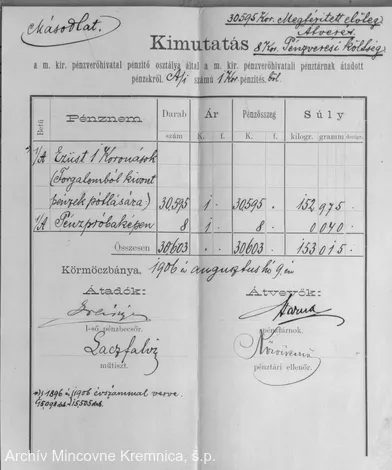 Másodlat.
30595 Kor. Megtérített előleg
Átverés
Kimutatás
8 Kor. Pénzverési költség
a m. kir. pénzverőhivatal pénzitő osztálya által a m. kir. pénzverőhivatali pénztárnak átadott
pénzekről. A/1 számú 1 Kor. pénzités ből.
Betü Pénznem Darab szám Ár K. f. Pénzösszeg K. f. Súly kilogr. gramm
1/A Ezüst 1 Koronások
(Forgalomból kivont
pénzek pótlására) 30.595 1 . 30595 . 152 975
1/A Pénzpróbaképen 8 1 8 . 0 040
Összesen 30.603 . 30603 . 153 015
Körmöczbánya, 1906 évi augusztus hó 9.én
Átadók: Átvevők:
I-ső pénzbecsőr. pénztárnok.
Laczfalvi
mütiszt. pénztári ellenőr.
1896 és 1906 évszámmal verve
15.098 db 15.505 db.
Archív Mincovne Kremnica, š.p.